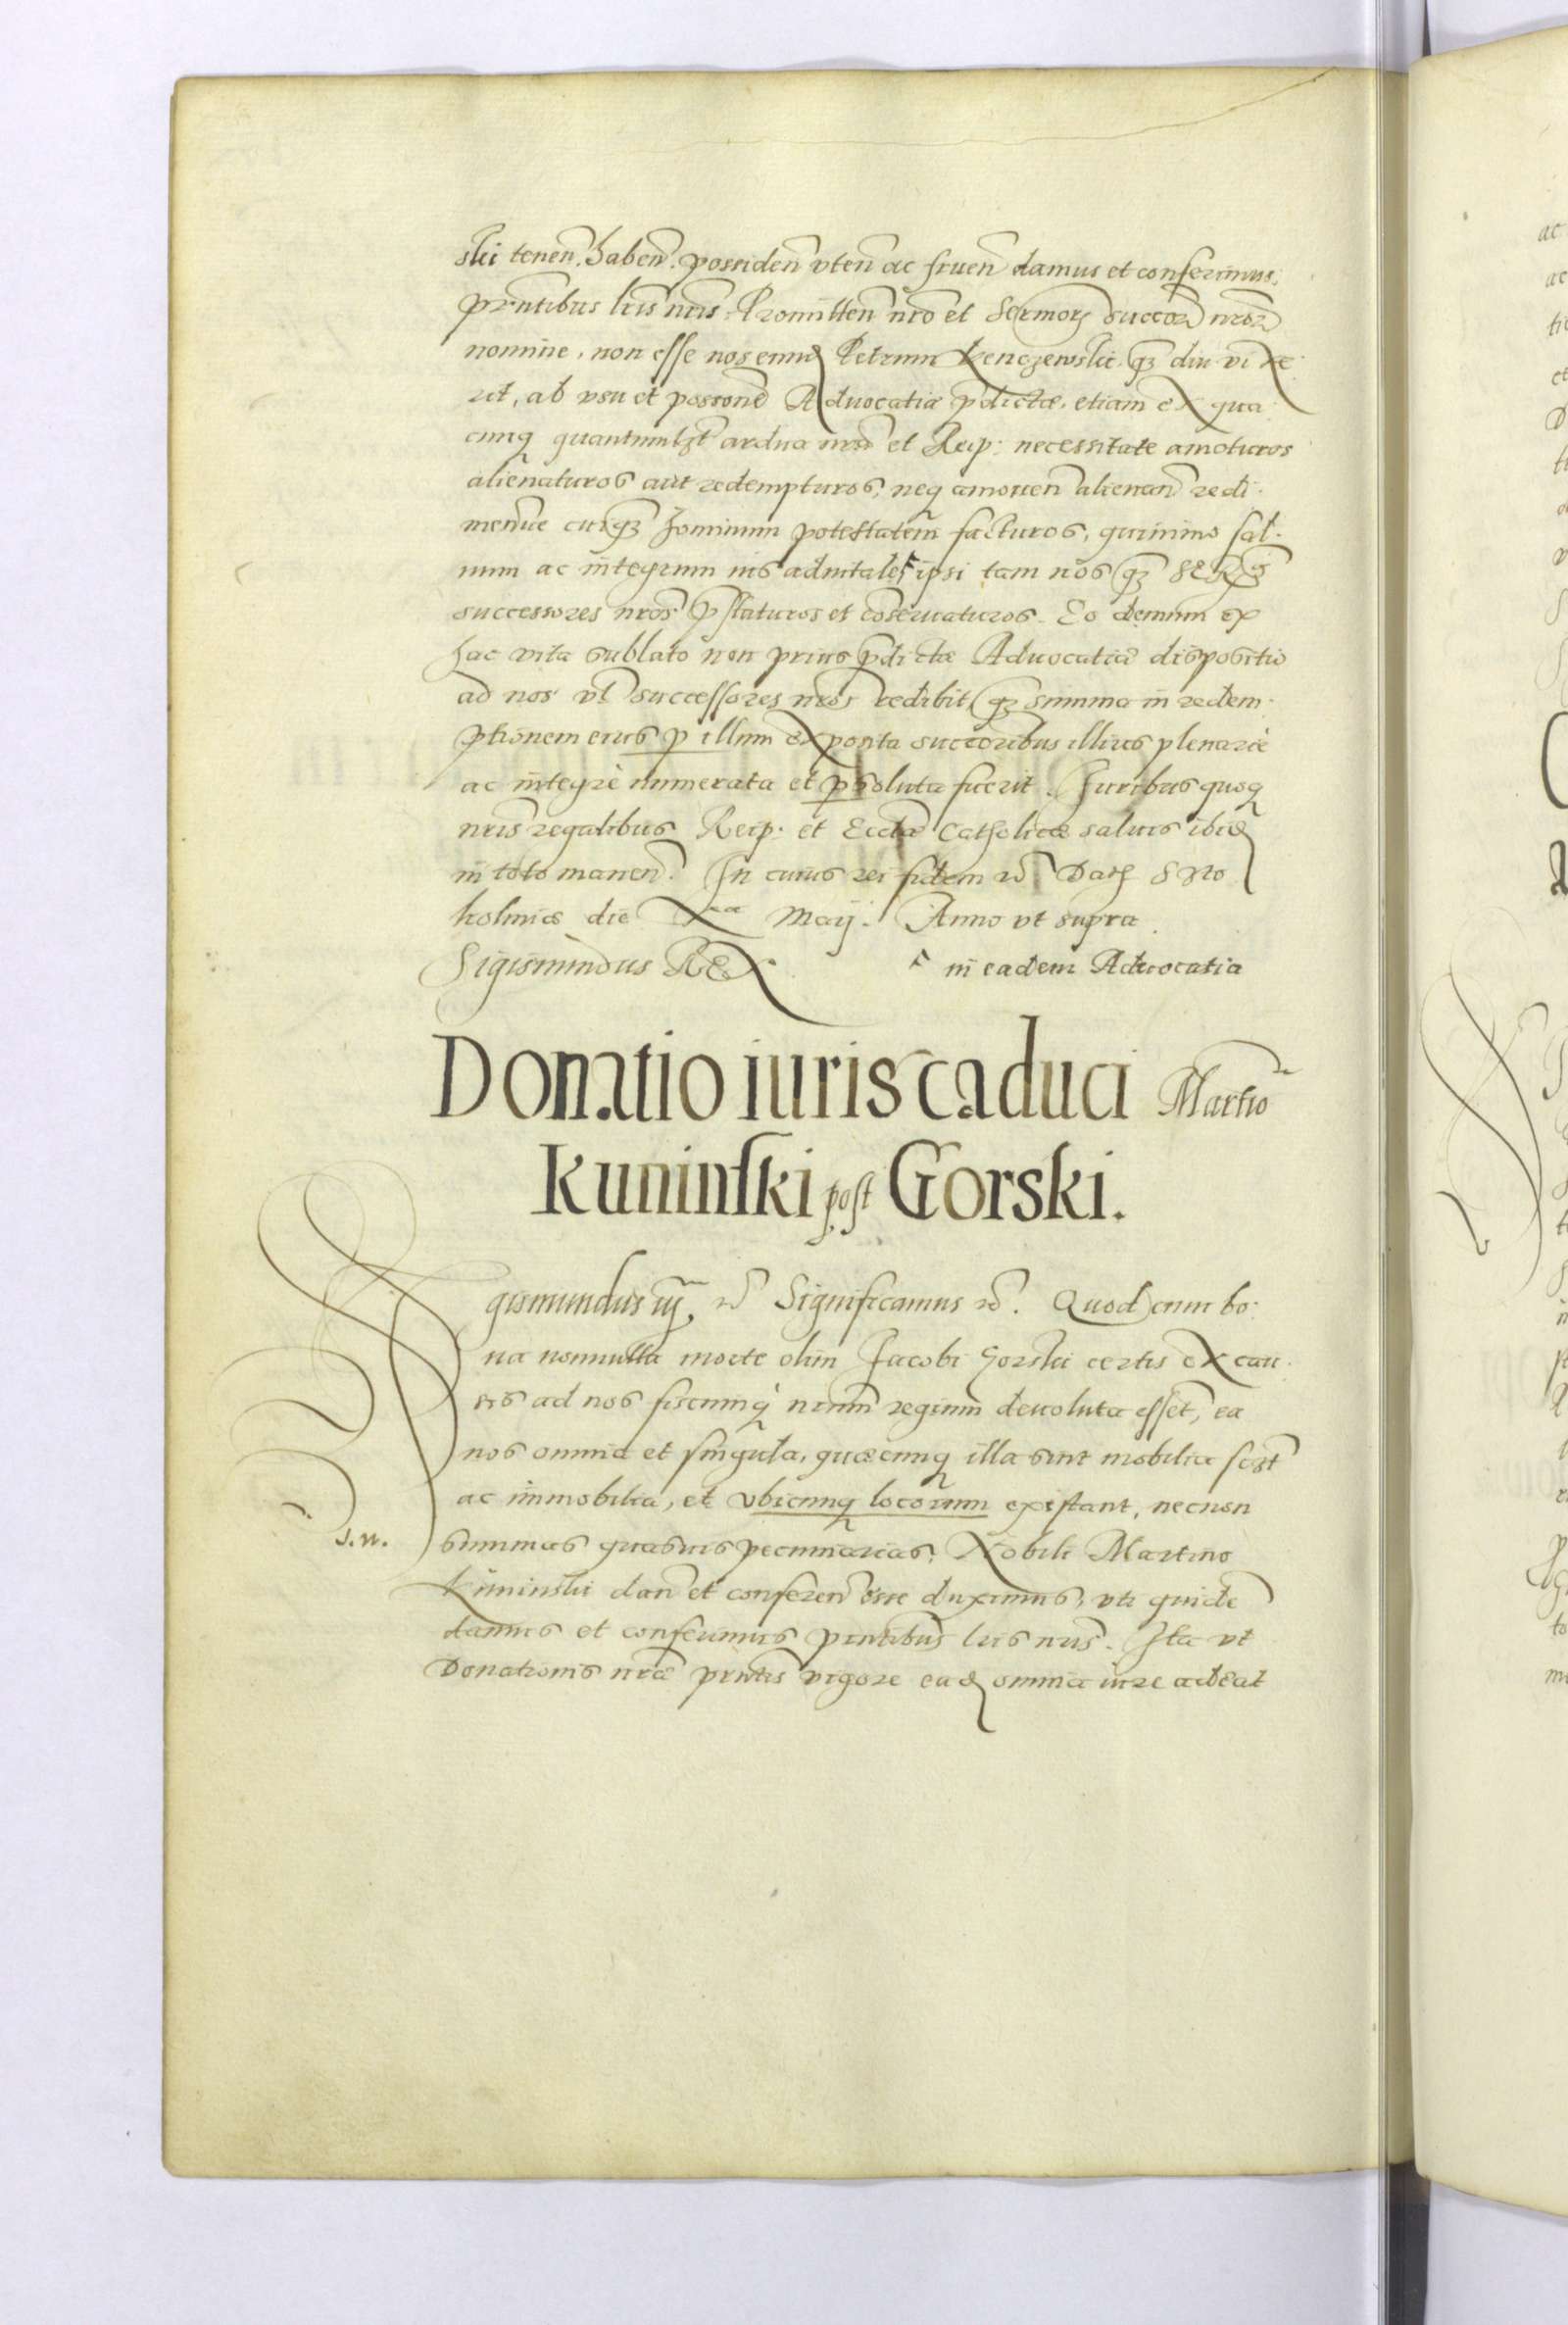 ski tenen̄. haben̄. possiden̄ vten̄ ac fruen̄ damus et conferimus,
prn̄tibus lr̄is nr̄is. Promitten̄ nr̄o et Ser̄mor̄ succor̄ nr̄or̄
nomine, non esse nos eund̄ Petrum Kenczewski, q̄z diu vixe
rit, ab vsu et possion̄e Aduocatiæ p̄dictæ, etiam ex qua
cunq̨ quantumlz̄t ardua nr̄a et Reip: necessitate amoturos
alienaturos aut redempturos, neq̨ amouen̄ alienan̄ redi
men̄ue cuiq̄z hominum potestatem facturos, quinimo sal
uum ac integrum ius aduitale ipsi tam nos q̄z Ser̄os
successores nr̄os p̄staturos et cōseruaturos. Eo demum ex
hac vita sublato non prius p̄dictæ Aduocatiæ dispositio
ad nos vl̄ successores nr̄os redibit, q̄z summa in redem
ptionem eius p̱ illum exposita succoribus illius plenariè
ac integrè numerata et p̱soluta fuerit. Juribus quoq̨
nr̄is regalibus Reip: et Eccl̄æ Catholicæ saluis ibid̄
in toto manen̄. In cuius rei fidem rc̄ Dat̄ Sto
kolmiæ die Xa Maij. Anno vt supra.
Sigismundus REX.
in eadem Aduocatia
Donatio iuris caduci Martio
Kuninski post Gorski.
Sigismundus iij, rc̄ Significamus rc̄. Quod cum bo
na nonnulla morte olim Jacobi Gorski certis ex cau
sis ad nos fiscumq̨ nr̄um regium deuoluta essēt, ea
nos omnia et singula, quæcunq̨ illa sint mobilia scz̄t
ac immobilia, et vbicunq̨ locorum existant, necnon
J.W.
summas quasuis pecuniarias, Nobili Martino
Kuninski dan̄ et conferen̄ esse duximus, vti quidē
damus et conferimus prn̄tibus lr̄is nr̄is. Ita vt
Donationis nr̄æ prn̄tis vigore ead̄ omnia iure adeat